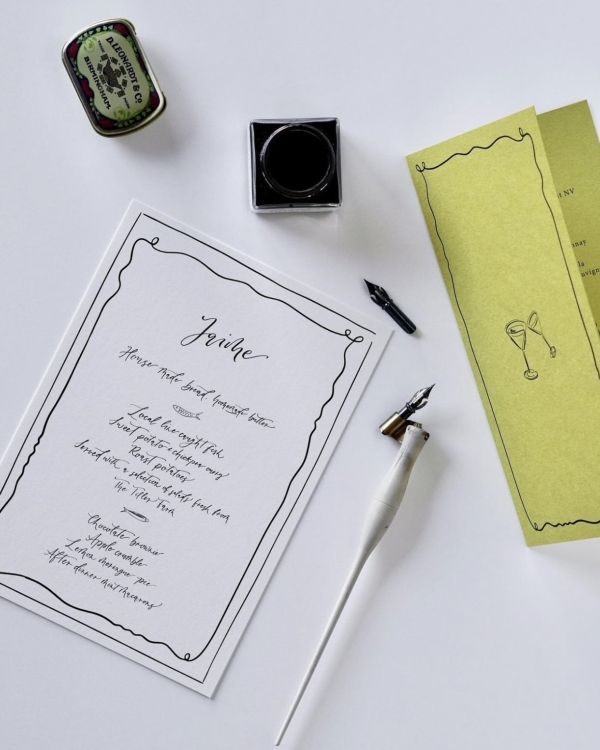 D. LEONARDT & Co
BIRMINGHAM.
Jaime
House made bread, homemade butter
Local line caught fish
Sweet potato & chickpea curry
Roast potatoes
Served with a selection of salads fresh from
The Titler Farm
Chocolate brownie
Apple crumble
Lemon meringue pie
After dinner mint macarons
NV